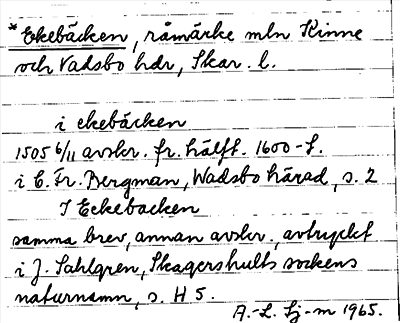 *Ekebäcken, råmärke mln Kinne
och Vadsbo hdr, Skar. l.
i ekebäcken
1505 6/11 avskr. fr. hälft. 1600-t.
i C. Fr. Bergman, Wadsbo härad, s. 2
I Eckebacken
samma brev, annan avskr., avtryckt
i J. Sahlgren, Skagershults sockens
naturnamn, s. H 5.
A.-L. Lj-m 1965.